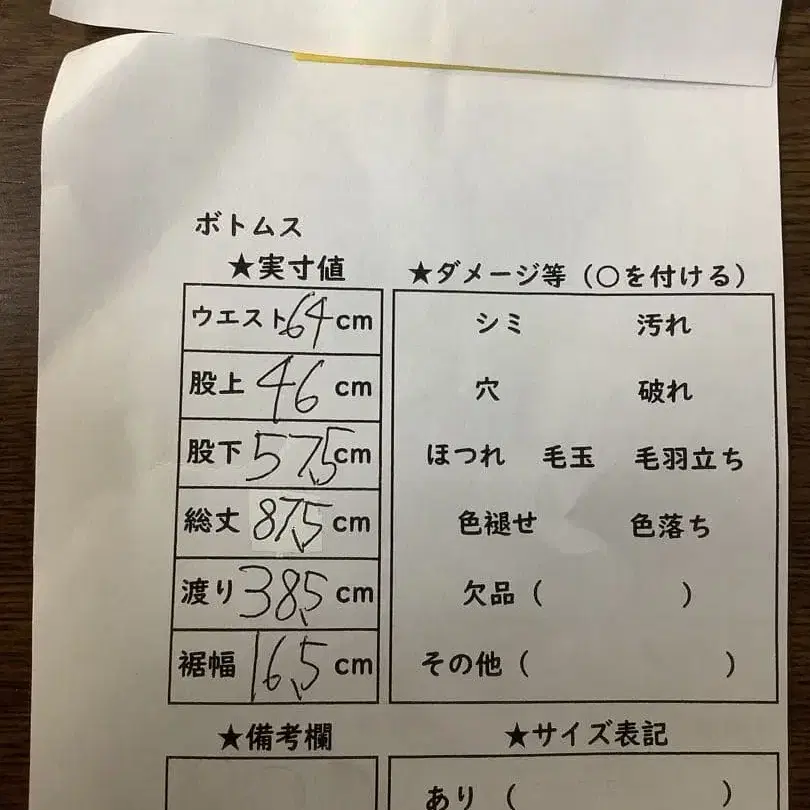 ボトムス
★実寸値
ウエスト64cm
股上46cm
股下57.5cm
総丈87.5cm
渡り38.5cm
裾幅16.5cm
★ダメージ等（○を付ける）
シミ 汚れ
穴 破れ
ほつれ 毛玉 毛羽立ち
色褪せ 色落ち
欠品（ ）
その他（ ）
★備考欄
★サイズ表記
あり（ ）